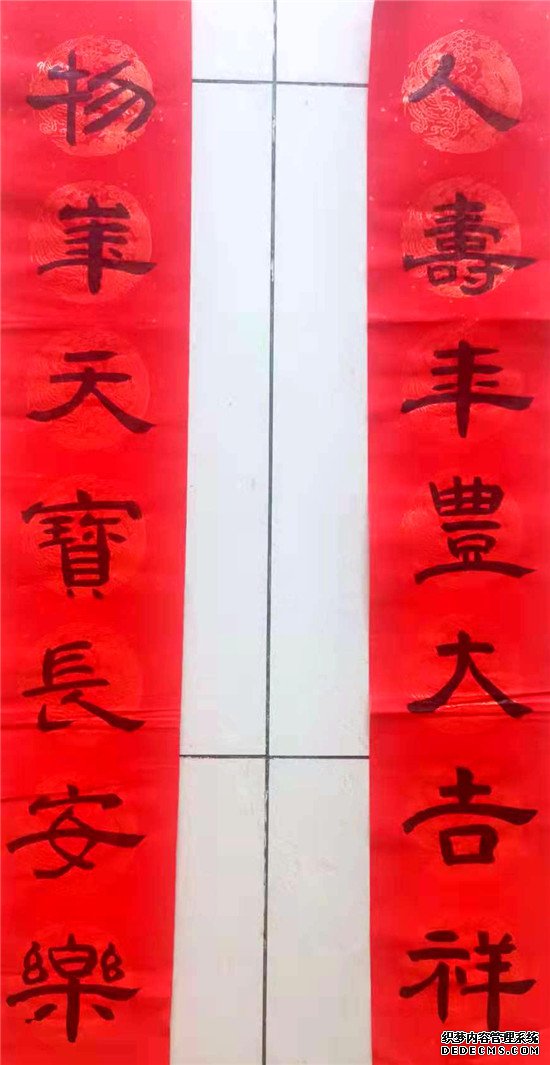 人壽年豐大吉祥
物華天寶長安樂
织梦内容管理系统
DEDECMS.COM